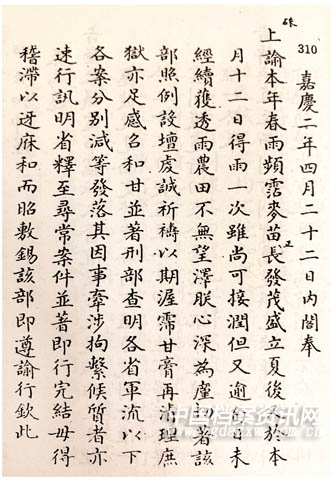 310
嘉慶二年四月二十二日內閣奉
上諭本年春雨頻霑麥苗長發茂盛立夏後又於本
月十二日得雨一次雖尚可接潤但又逾旬日未
經續獲透雨農田不無望澤朕心深為廑切著該
部照例設壇虔誠祈禱以期渥霈甘膏再清理庶
獄亦足感召和甘並著刑部查明各省軍流以下
各案分別減等發落其因事牽涉拘繫候質者亦
速行訊明省釋至尋常案件並著即行完結毋得
稽滯以迓庥和而昭敷錫該部即遵諭行欽此
中国档案资讯网